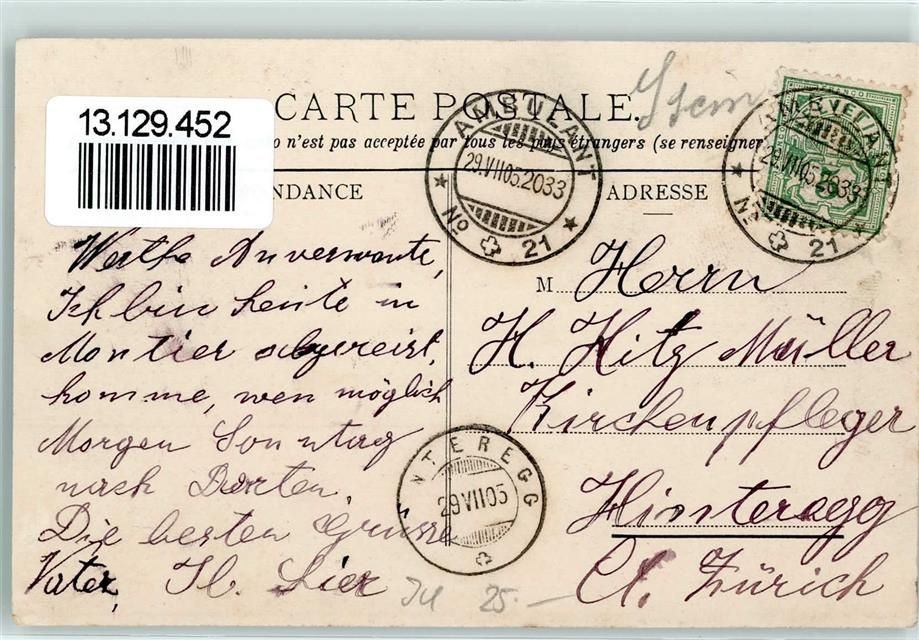 13.129.452
CARTE POSTALE.
Stein
o n'est pas acceptée par tous les pays étrangers (se renseigner
NDANCE
ADRESSE
AMBULANT
29.VII05.2033
No 21
AMBULANT
29.VII05.2033
No 21
HELVETIA
FRANCO
Werthe Anverwante,
Ich bin heute in
Montier abgereist,
komme, wen möglich
Morgen Sonntag
nach Dorten.
Die besten Grüsse
Vater,
M Herrn
H. Hitz Müller
Kirchenpfleger
Hinteregg
Ct. Zürich
HINTEREGG
29VII05
25.-